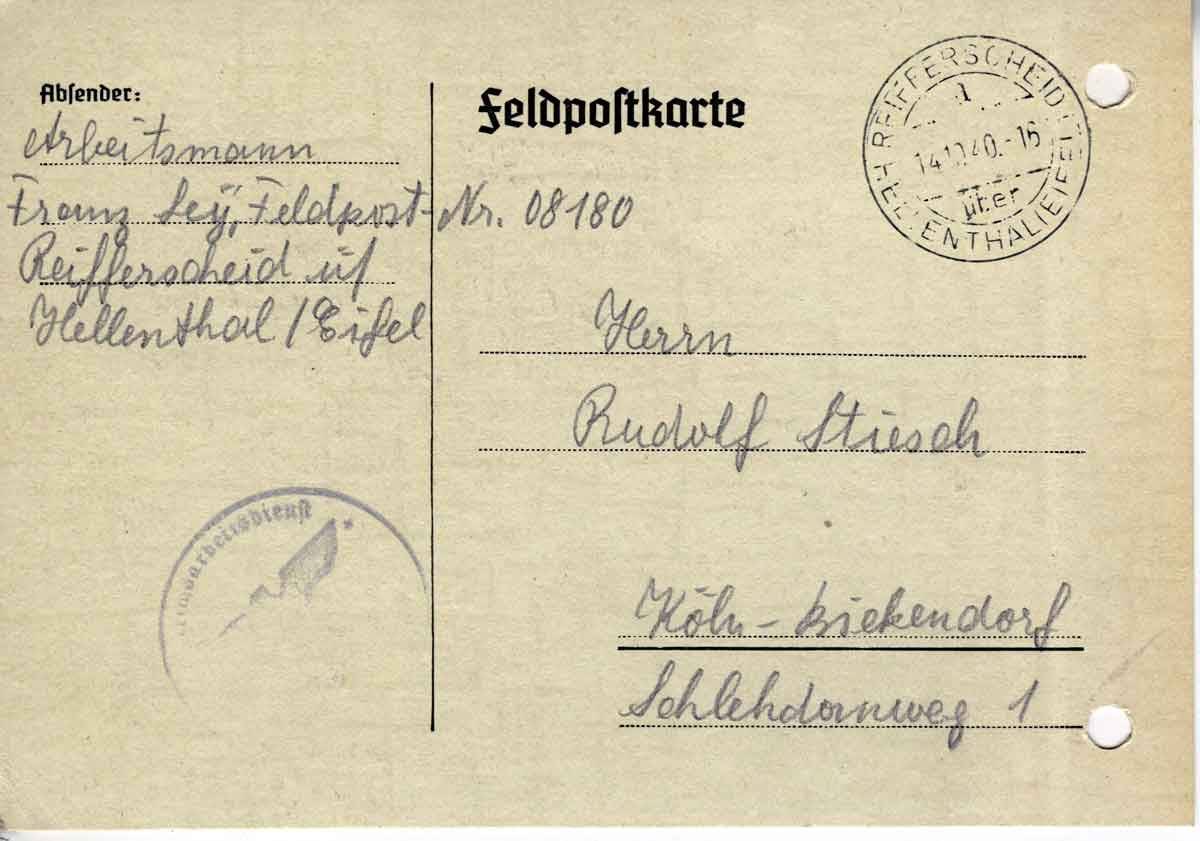 Absender:
Arbeitsmann
Franz Ley, Feldpost-Nr. 08180
Reifferscheid ü/
Hellenthal / Eifel
Feldpostkarte
REIFFERSCHEID
a
14.10.40.-16
über
HELLENTHAL (EIFEL)
Herrn
Rudolf Stiesch
Köln-Bickendorf
Schlehdornweg 1
arbeitsdienst